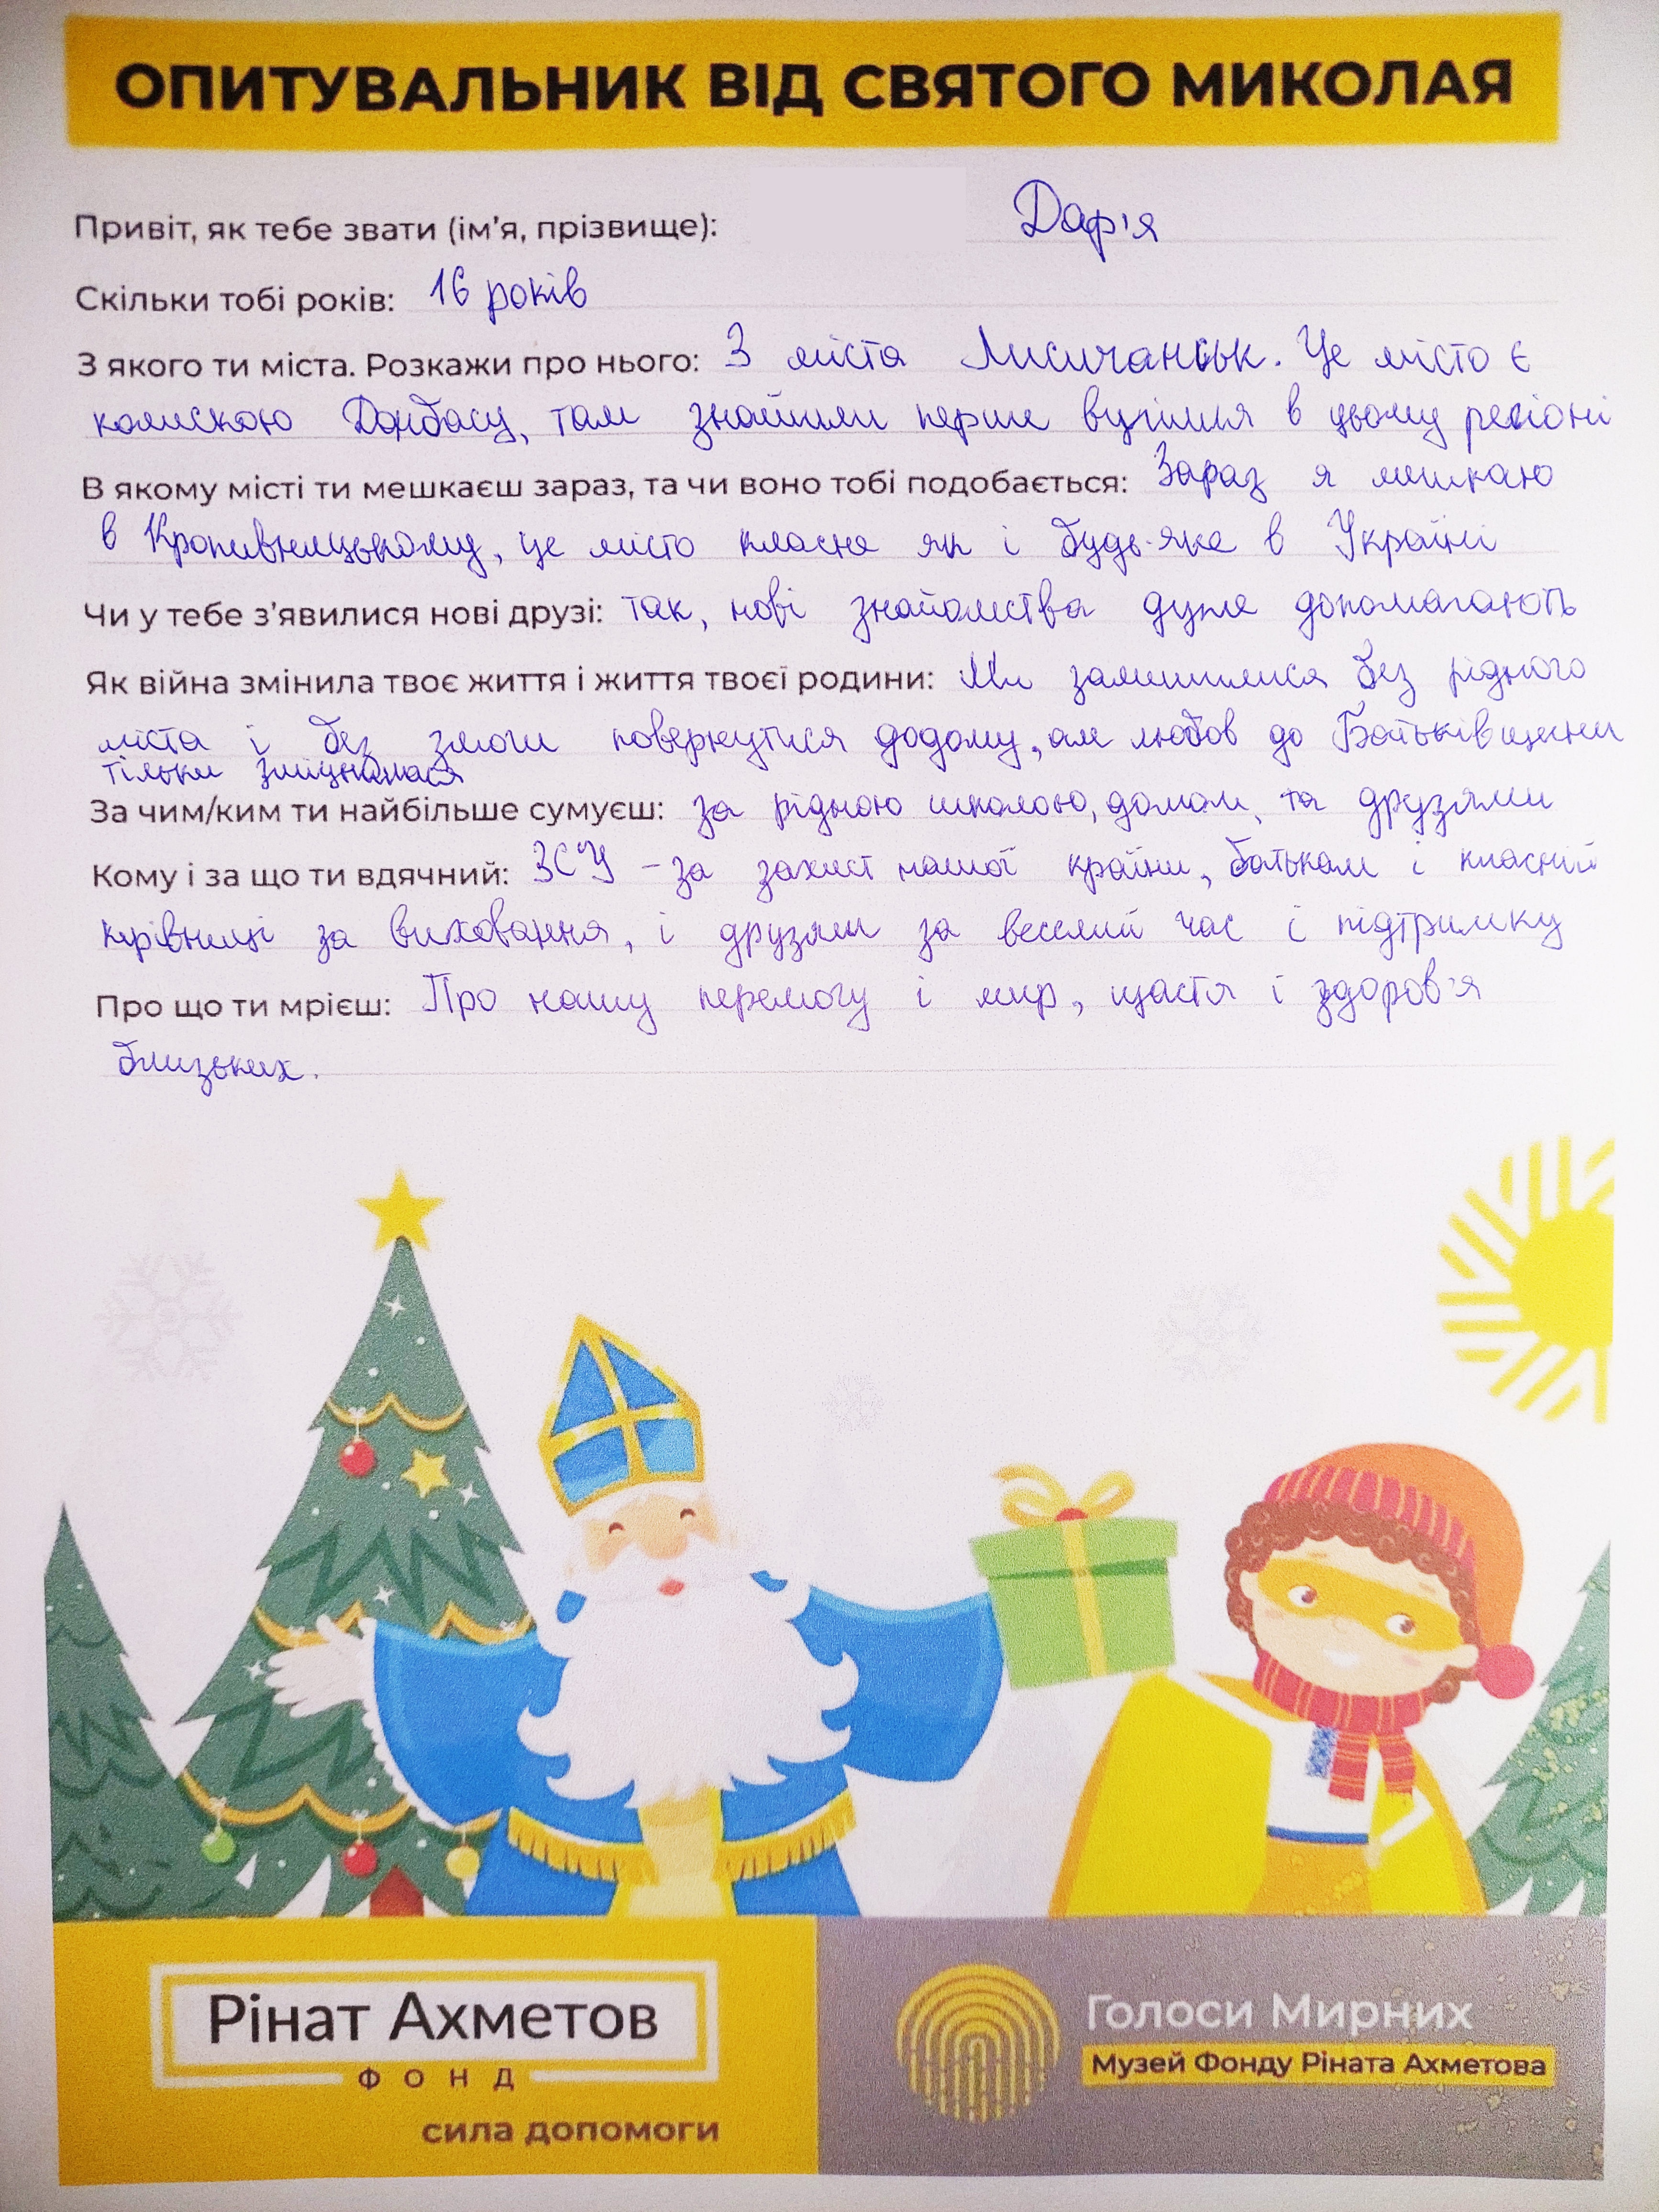 ОПИТУВАЛЬНИК ВІД СВЯТОГО МИКОЛАЯ
Привіт, як тебе звати (ім'я, прізвище): Дар'я
Скільки тобі років: 16 років
З якого ти міста. Розкажи про нього: З міста Лисичанськ. Це місто є
колискою Донбасу, там знайшли перше вугілля в цьому регіоні
В якому місті ти мешкаєш зараз, та чи воно тобі подобається: Зараз я мешкаю
в Кропивницькому, це місто класне як і будь-яке в Україні
Чи у тебе з'явилися нові друзі: так, нові знайомства дуже допомагають
Як війна змінила твоє життя і життя твоєї родини: Ми залишилися без рідного
міста і без змоги повернутися додому, але любов до Батьківщини
тільки зміцнилася
За чим/ким ти найбільше сумуєш: за рідною школою, домом, та друзями
Кому і за що ти вдячний: ЗСУ - за захист нашої країни, батькам і класній
керівниці за виховання, і друзям за веселий час і підтримку
Про що ти мрієш: Про нашу перемогу і мир, щастя і здоров'я
близьких.
Рінат Ахметов
ФОНД
сила допомоги
Голоси Мирних
Музей Фонду Ріната Ахметова